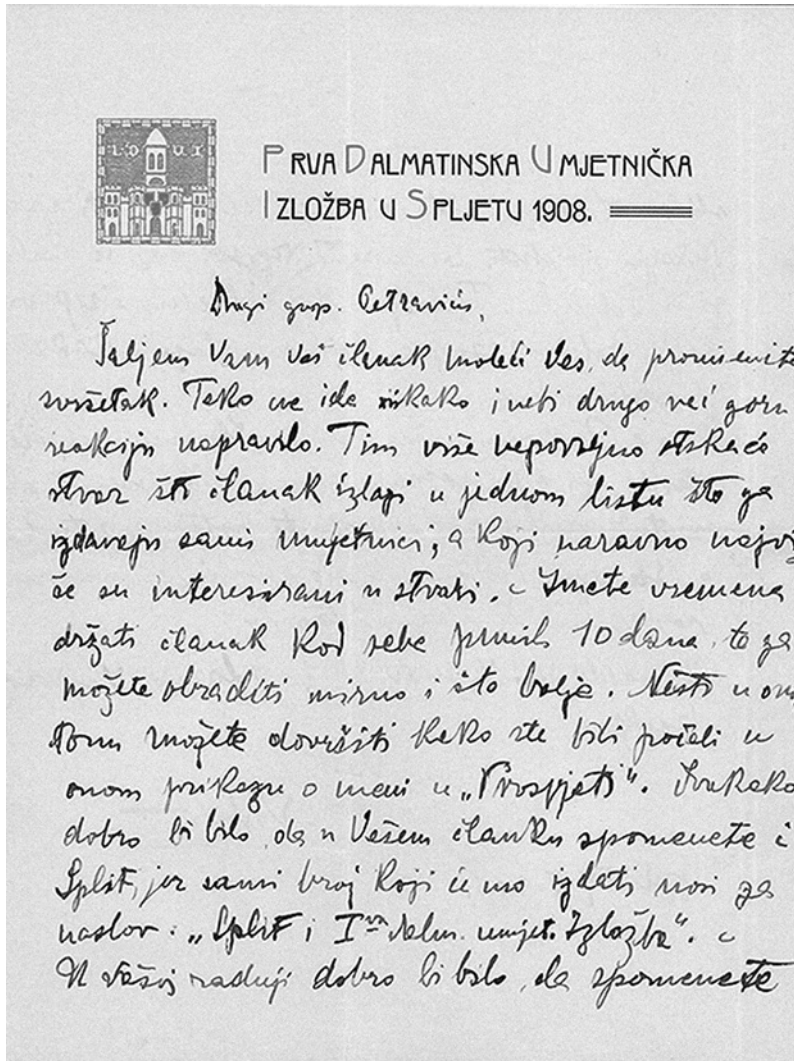 PRVA DALMATINSKA UMJETNIČKA
IZLOŽBA U SPLJETU 1908.
Dragi gosp. Petraviću,
Šaljem Vam vaš članak moleći Vas, da promienite
svršetak. Tako ne ide nikako i nebi drugo već goru
reakciju napravilo. Tim više nepovoljno
stvar što članak izlazi u jednom listu što ga
izdavaju sami umjetnici, a koji naravno najvi
še su interesirani u stvari. Imete vremena
držati članak kod sebe punih 10 dana, to ga
možete obraditi mirno i što bolje. Nešto u ono
tonu možete dovršiti kako ste bili počeli u
onom prikazu o meni u „Prosvjeti“. Svakako
dobro bi bilo, da u Vašem članku spomenete i
Split, jer sami broj koji ćemo izdati nosi za
naslov: „Split i Iva Dalm. umjet. Izložba“.
U vašoj radnji dobro bi bilo, da spomenete